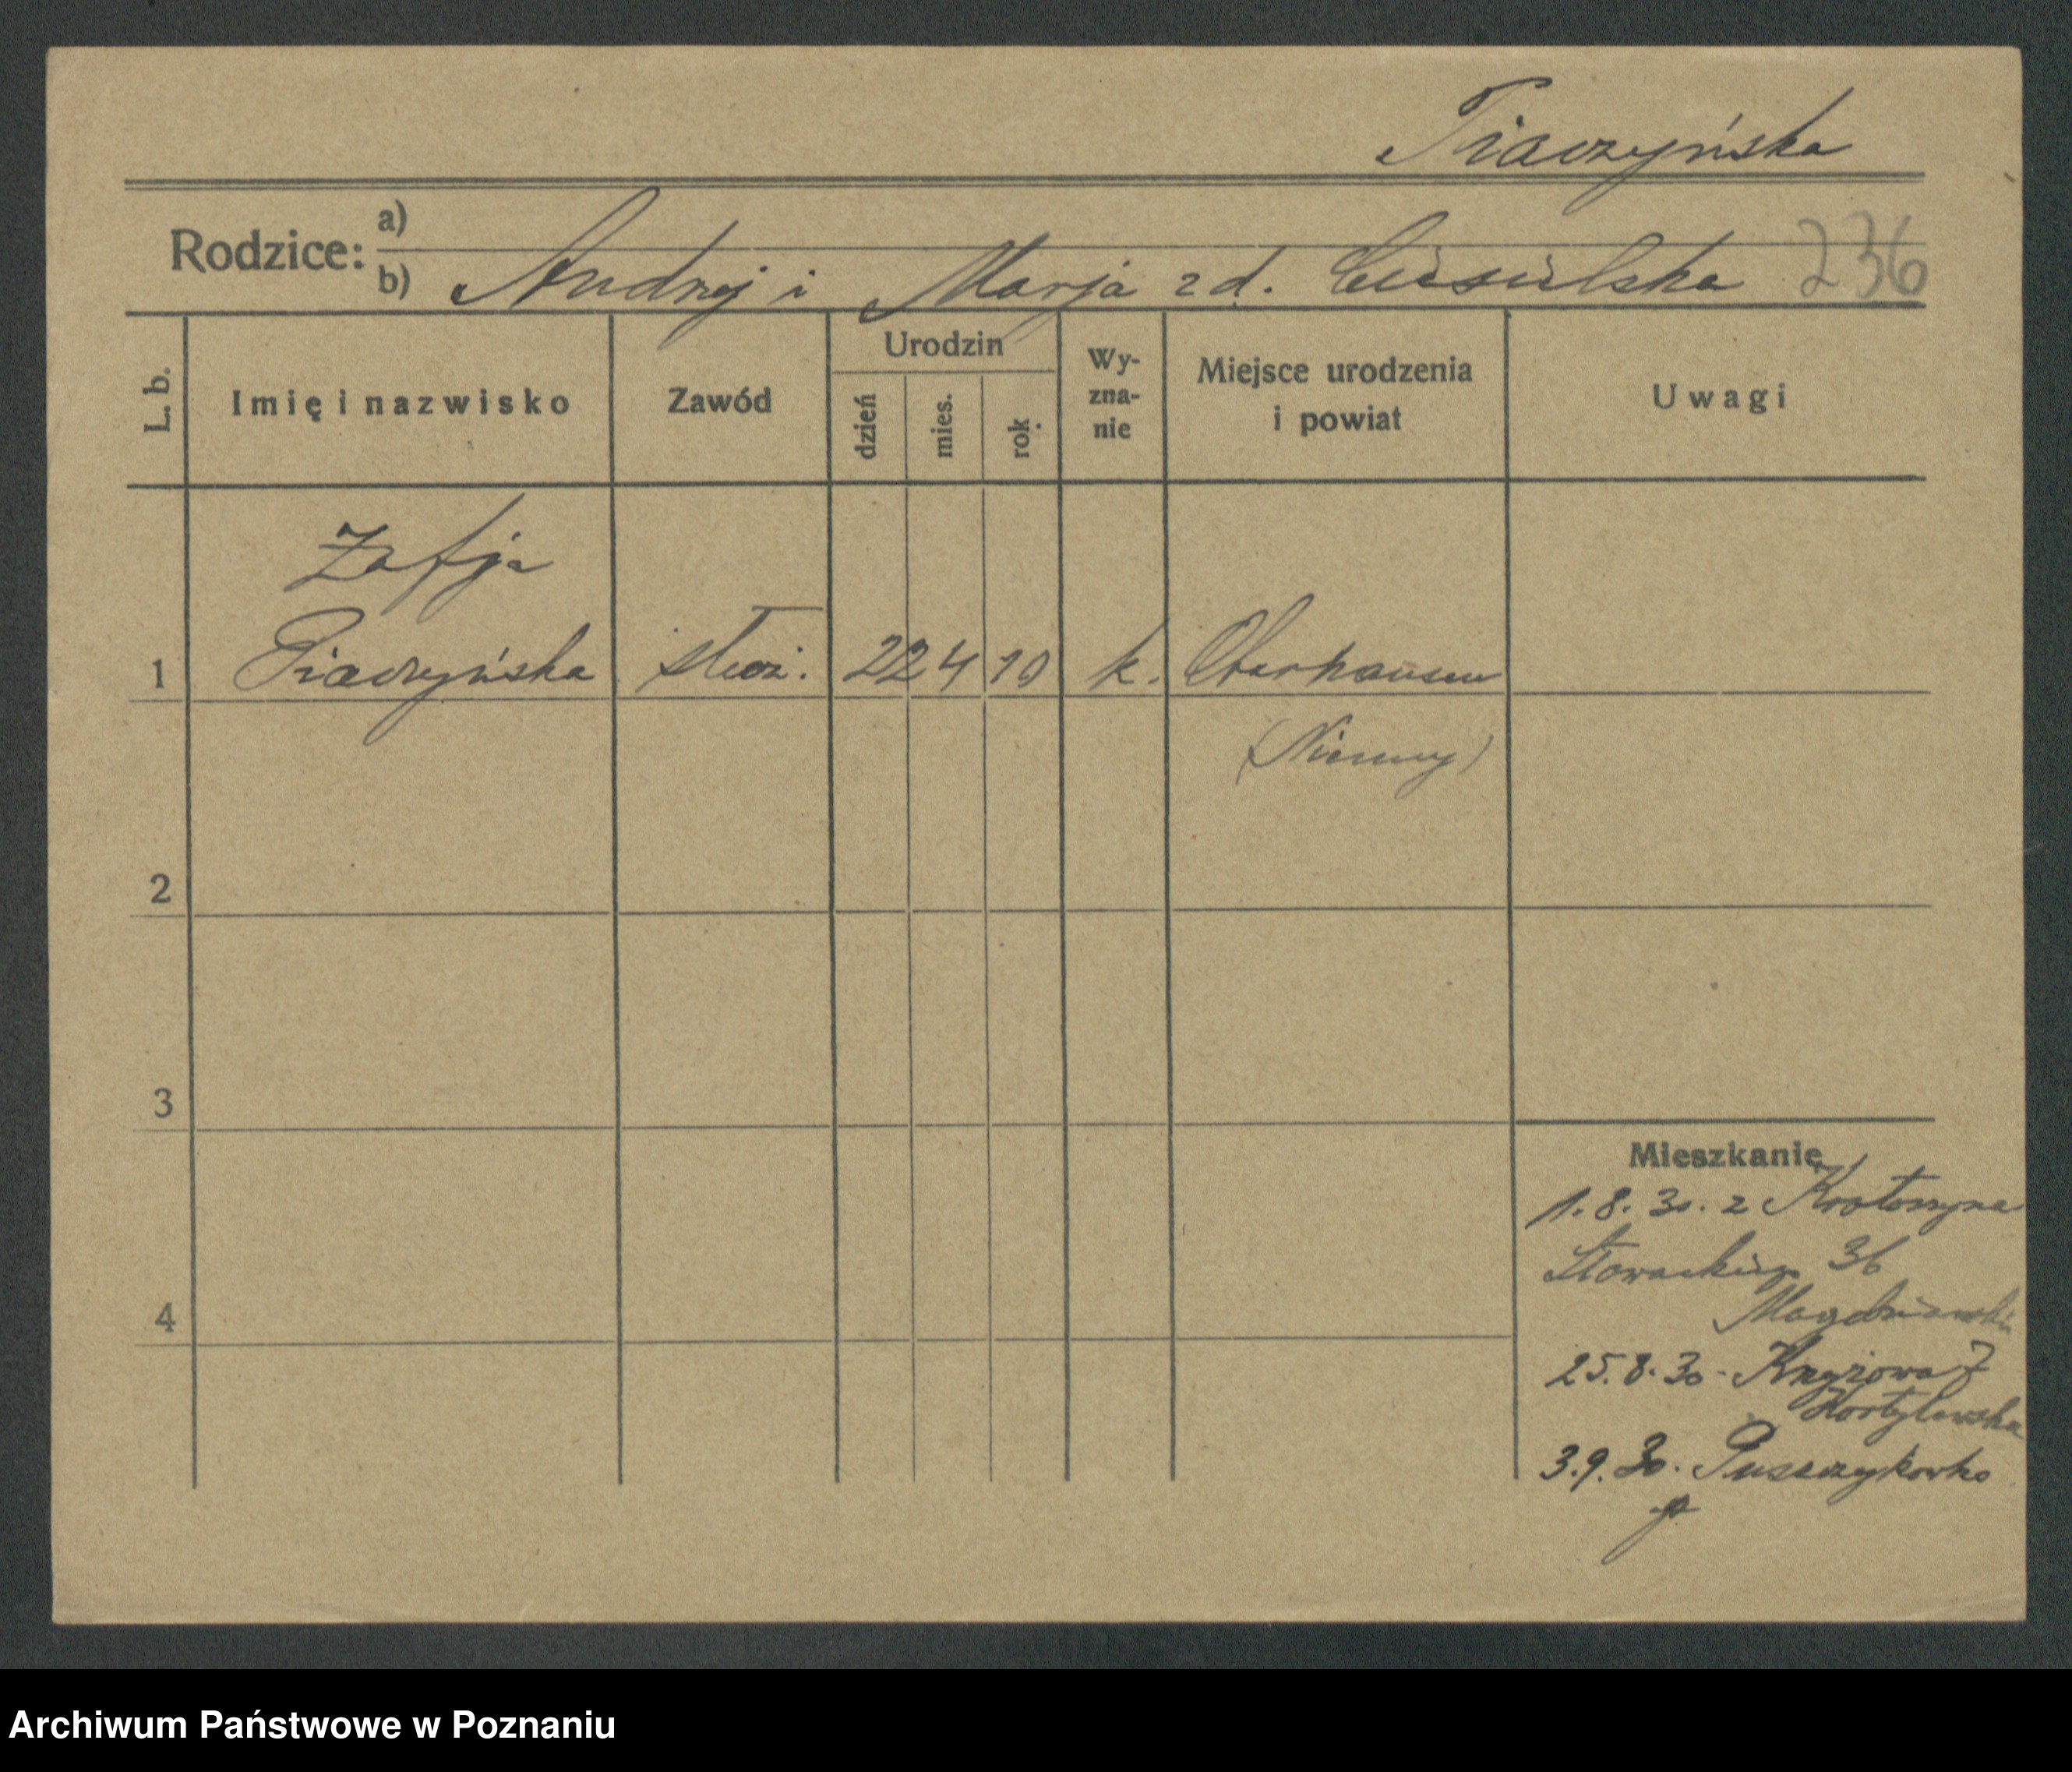 Piaczyńska
Rodzice: a)
b) Andrzej i Marja z d. Ciesielska 236
L. b.
Imię i nazwisko
Zawód
Urodzin
dzień
mies.
rok
Wy-
zna-
nie
Miejsce urodzenia
i powiat
Uwagi
Zofja
1 Piaczyńska służ. 22 4 10 k. Oberhausen
(Niemcy)
2
3
4
Mieszkanie
1.8.30. z Krotoszyna
Słowackiego 36
25.8.30 - Krzyżowa 7
3.9.30. Puszczykowko
Archiwum Państwowe w Poznaniu